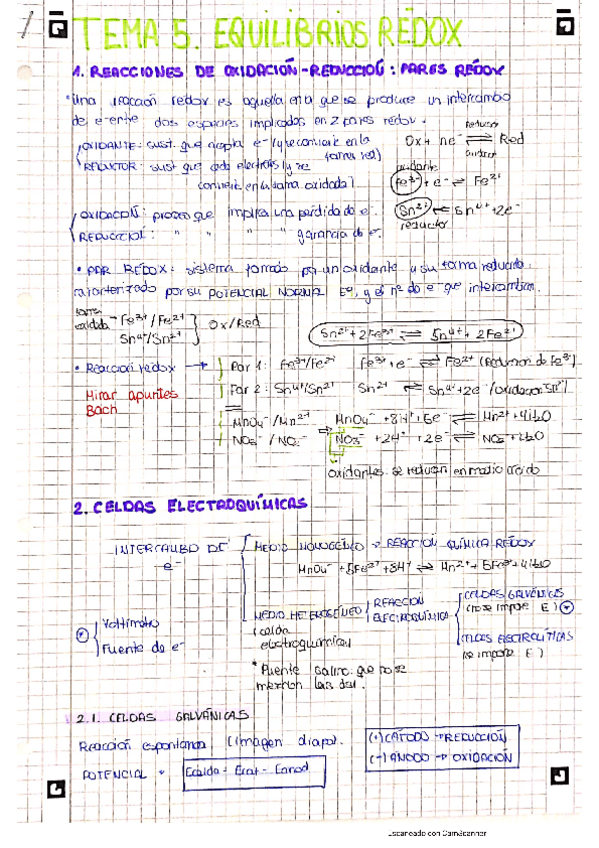 TEMA 5. EQUILIBRIOS REDOX
1. REACCIONES DE OXIDACIÓN-REDUCCIÓN: PARES REDOX
• Una reacción redox es aquella en la que se produce un intercambio
de e⁻ entre dos especies implicadas en 2 pares redox.
OXIDANTE: sust. que acepta e⁻ (y se convierte en la forma red)
REDUCTOR: sust que cede electrones (y se
convierte en la forma oxidada)
reducción
Ox + ne⁻ ⇌ Red
oxidante
Fe³⁺ + e⁻ ⇌ Fe²⁺
OXIDACIÓN: proceso que implica una pérdida de e⁻.
REDUCCIÓN: " " " " ganancia de e⁻.
Sn²⁺ ⇌ Sn⁴⁺ + 2e⁻
reductor
• PAR REDOX: sistema formado por un oxidante y su forma reducida,
caracterizado por su POTENCIAL NORMAL Eº, y el nº de e⁻ que intercambian.
forma oxidada → Fe³⁺/Fe²⁺
Sn⁴⁺/Sn²⁺ } Ox/Red
Sn²⁺ + 2Fe³⁺ ⇌ Sn⁴⁺ + 2Fe²⁺
• Reacción redox → Par 1: Fe³⁺/Fe²⁺ Fe³⁺ + e⁻ ⇌ Fe²⁺ (Reducción de Fe³⁺)
Mirar apuntes
Bach
Par 2: Sn⁴⁺/Sn²⁺ Sn²⁺ ⇌ Sn⁴⁺ + 2e⁻ (oxidación Sn²⁺)
MnO₄⁻/Mn²⁺ → MnO₄⁻ + 8H⁺ + 5e⁻ ⇌ Mn²⁺ + 4H₂O
NO₃⁻/NO₂⁻ NO₃⁻ + 2H⁺ + 2e⁻ ⇌ NO₂⁻ + H₂O
oxidantes se reducen en medio ácido
2. CELDAS ELECTROQUÍMICAS
INTERCAMBIO DE e⁻
MEDIO HOMOGÉNEO → REACCIÓN QUÍMICA REDOX
MnO₄⁻ + 5Fe²⁺ + 8H⁺ ⇌ Mn²⁺ + 5Fe³⁺ + 4H₂O
MEDIO HETEROGÉNEO (celda electroquímica)
REACCIÓN ELECTROQUÍMICA
CELDAS GALVÁNICAS
(no se impone E)
CELDAS ELECTROLÍTICAS
(se impone E)
Voltímetro
Fuente de e⁻
* Puente salino: que no se
mezclen las dis.
2.1. CELDAS GALVÁNICAS
Reacción espontánea (imagen diapo).
(+) CÁTODO → REDUCCIÓN
(-) ÁNODO → OXIDACIÓN
POTENCIAL → Ecelda = Ecat - Eanod
Escaneado con CamScanner